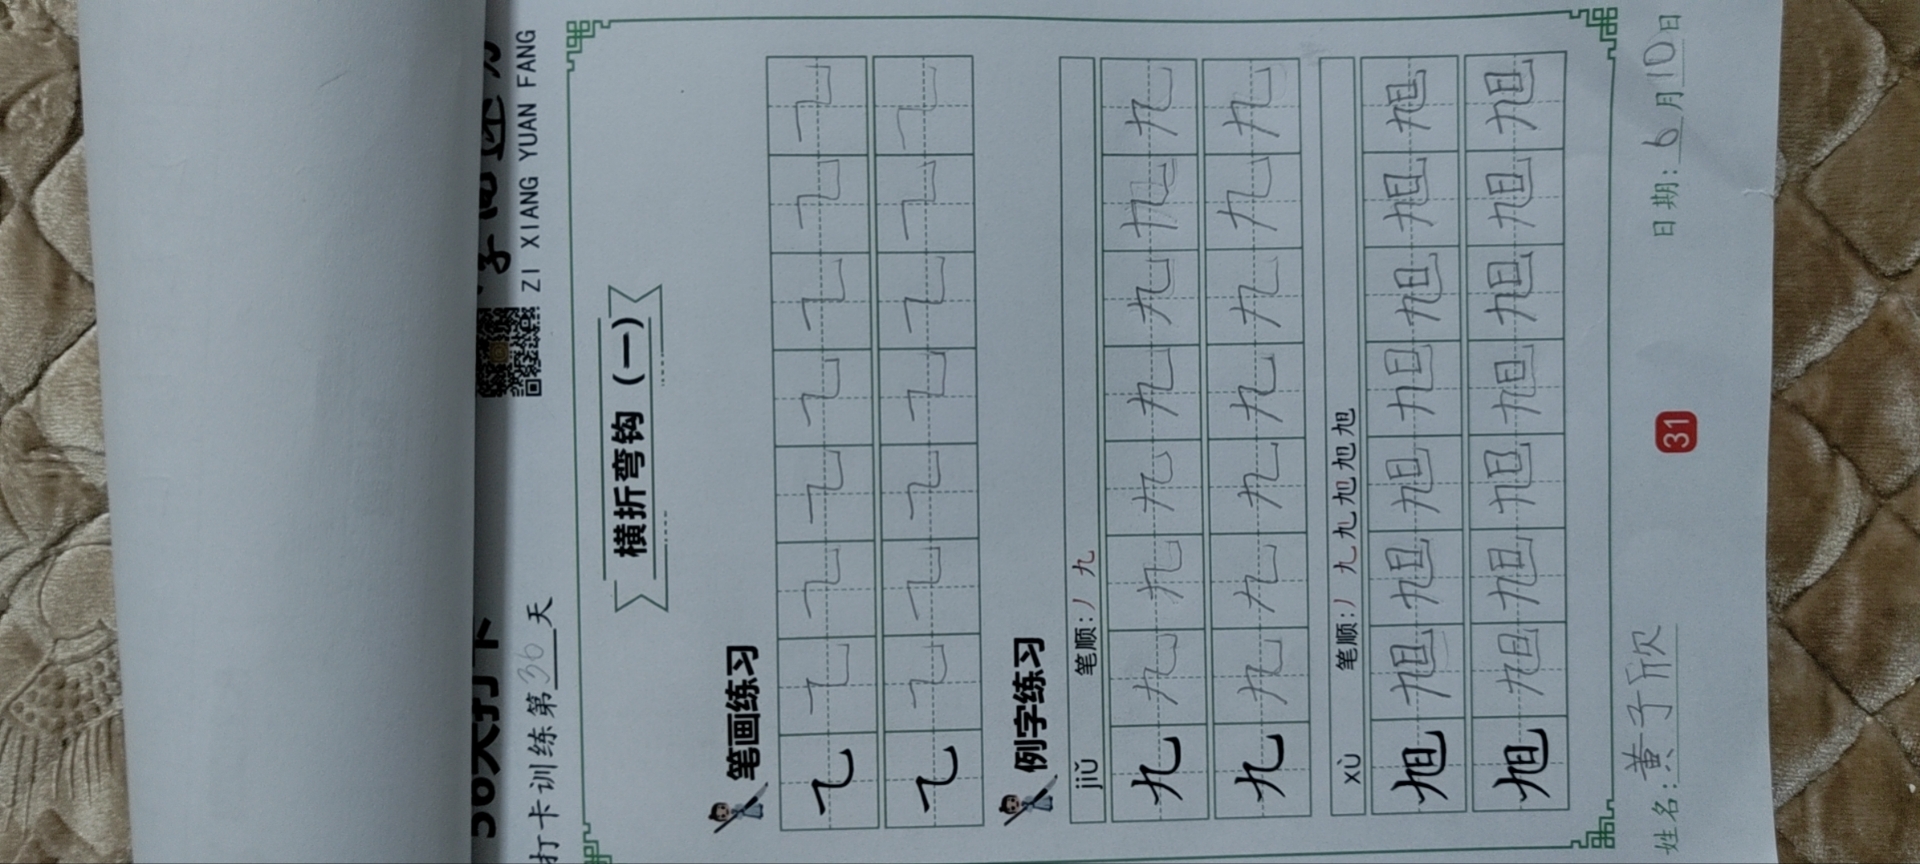 ZI XIANG YUAN FANG
打卡训练第36天
横折弯钩（一）
笔画练习
㇈ ㇈ ㇈ ㇈ ㇈ ㇈ ㇈ ㇈
㇈ ㇈ ㇈ ㇈ ㇈ ㇈ ㇈ ㇈
例字练习
jiǔ 笔顺：丿 九
九 九 九 九 九 九 九 九
九 九 九 九 九 九 九 九
xù 笔顺：丿 九 九 旭 旭 旭
旭 旭 旭 旭 旭 旭 旭 旭
旭 旭 旭 旭 旭 旭 旭 旭
姓名：黄子欣 31 日期：6月10日